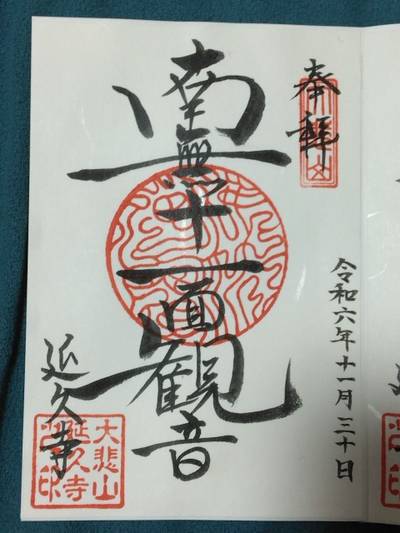 奉拝
令和六年十一月三十日
南無十一面観音
延久寺
大悲山
延久寺